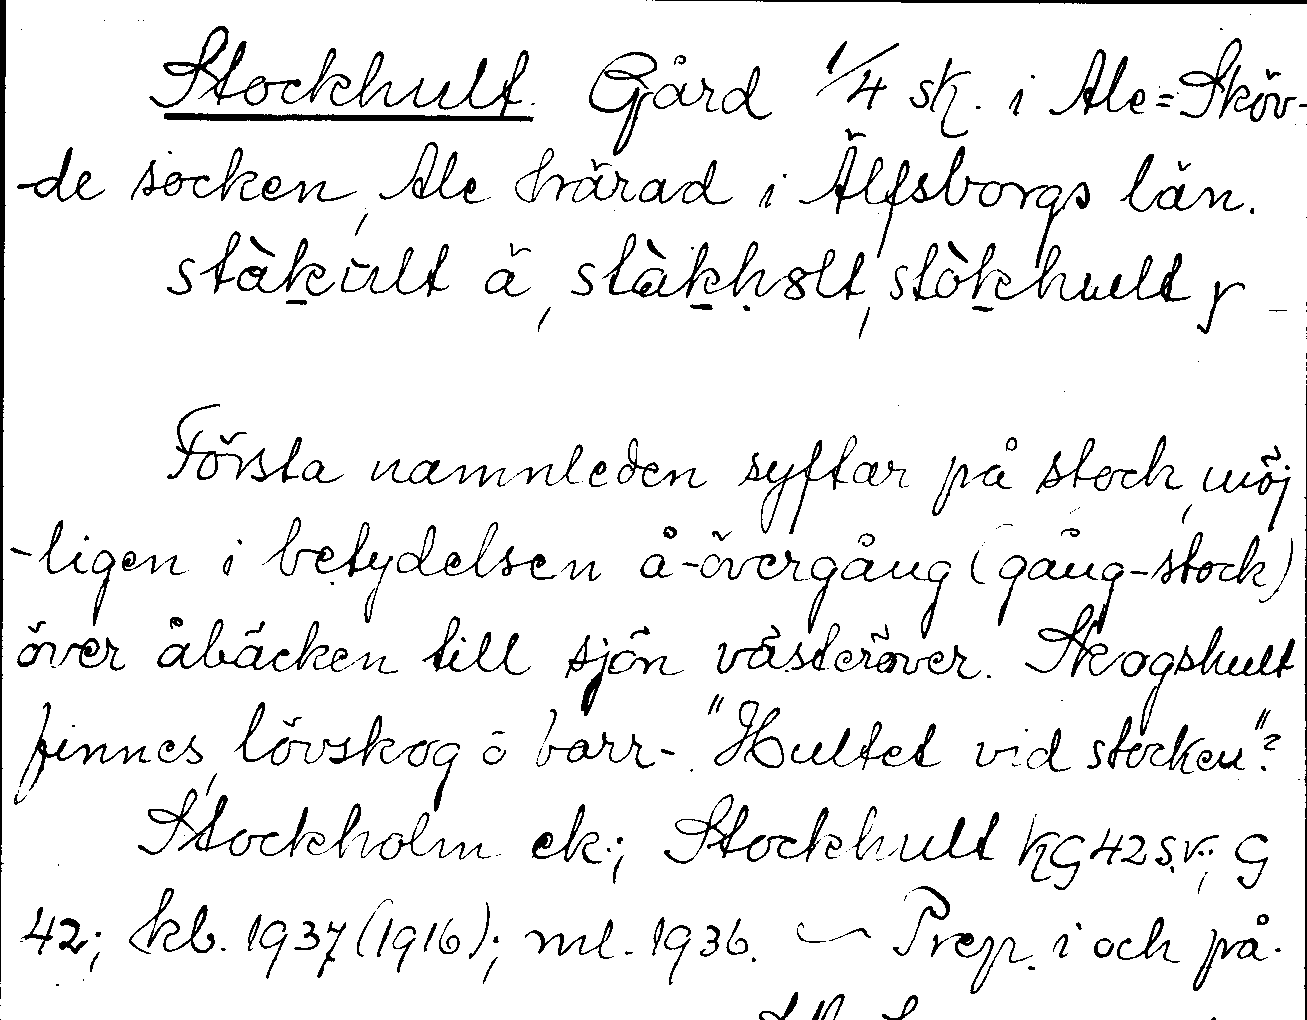 Stockhult. Gård 1/4 sk. i Ale=Sköv-
-de socken, Ale härad i Älfsborgs län.
stàkult ä, stàkholt, stòkhult y
Första namnleden syftar på stock, möj
-ligen i betydelsen å-övergång (gång-stock)
över åbäcken till sjön västeröver. Skogshult
finnes, lövskog o barr-. "Hultet vid stocken"?
Stockholm ek.; Stockhult KG 42 s.v.; G
42; kb. 1937 (1916); ml. 1936. ~ Prep. i och på.